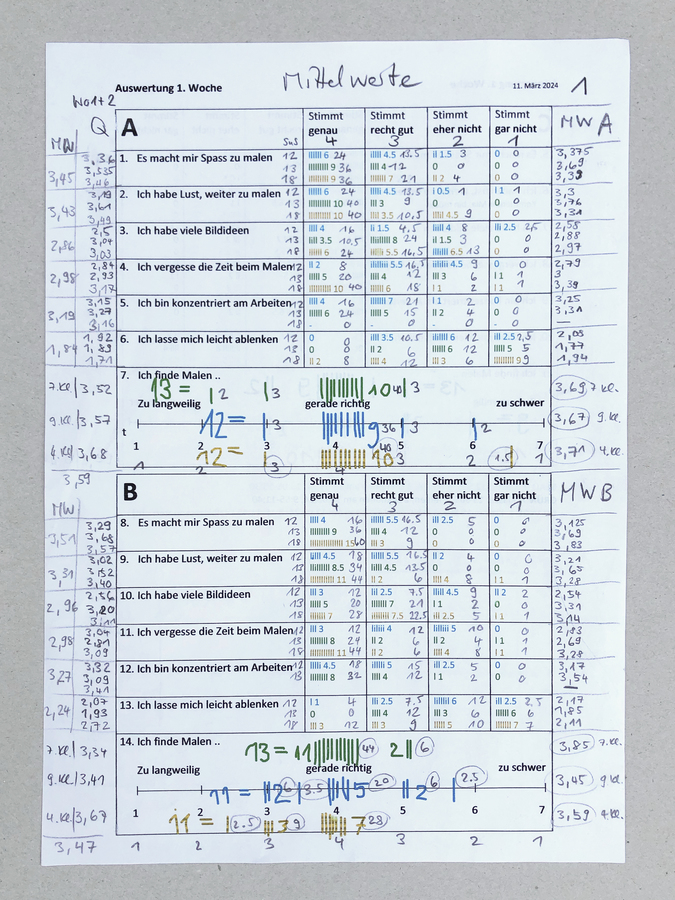 Mittelwerte
Auswertung 1. Woche
11. März 2024
1
Wo 1+2
MW
Q
A
Stimmt genau
Stimmt recht gut
Stimmt eher nicht
Stimmt gar nicht
MW A
SuS
4
3
2
1
1. Es macht mir Spass zu malen
12
6 24
4.5 13.5
1.5 3
0 0
3,375
13
9 36
4 12
0 0
0 0
3,69
18
9 36
7 21
2 4
0 0
3,45
2. Ich habe Lust, weiter zu malen
12
6 24
4.5 13.5
0.5 1
1 1
3,3
13
10 40
3 9
0 0
0 0
3,76
18
10 40
3.5 10,5
4.5 9
0 0
3,31
3,43
3. Ich habe viele Bildideen
12
4 16
1.5 4,5
4 8
2.5 2,5
2,58
13
3.5 10,5
8 24
1.5 3
0 0
2,88
18
6 24
5.5 16,5
6.5 13
0 0
2,97
2,86
4. Ich vergesse die Zeit beim Malen
12
2 8
5.5 16,5
4.5 9
0 0
2,79
13
5 20
4 12
3 6
1 1
3
18
10 40
6 18
1 2
1 1
3,39
2,98
5. Ich bin konzentriert am Arbeiten
12
4 16
7 21
1 2
0 0
3,25
13
6 24
5 15
2 4
0 0
3,31
18
- 0
- 0
- 0
- 0
3,19
6. Ich lasse mich leicht ablenken
12
0 0
3.5 10,5
6 12
2.5 2,5
13
0 0
2 6
6 12
5 5
1,77
18
2 8
4 12
6 12
9 9
1,94
1,84
7. Ich finde Malen ..
13 = 2 3 10 40 3
Zu langweilig
gerade richtig
zu schwer
12 = 3 9 36 3 2
t
1 2 3 4 5 6 7
12 = 3 10 40 1.5
1 2 3 4 3 2 1
7. Kl. 3,52
9. Kl. 3,57
4. Kl 3,68
3,59
3,69 7 Kl.
3,67 9. Kl.
3,71 4. Kl.
MW
B
Stimmt genau
Stimmt recht gut
Stimmt eher nicht
Stimmt gar nicht
MW B
4
3
2
1
8. Es macht mir Spass zu malen
12
4 16
5.5 16.5
2.5 5
0 0
3,125
13
9 36
4 12
0 0
0 0
3,69
18
15 60
3 9
0 0
0 0
3,83
3,51
9. Ich habe Lust, weiter zu malen
12
4.5 18
5.5 16.5
2 4
0 0
3,21
13
8.5 34
4.5 13.5
0 0
0 0
3,65
18
11 44
2 6
4 8
1 1
3,28
3,31
10. Ich habe viele Bildideen
12
3 12
2.5 7.5
4.5 9
2 2
2,54
13
5 20
7 21
1 2
0 0
3,31
18
7 28
7.5 22,5
2.5 5
1 1
3,14
2,96
11. Ich vergesse die Zeit beim Malen
12
3 12
4 12
5 10
0 0
2,83
13
8 24
2 6
2 4
1 1
2,69
18
11 44
2 6
4 8
1 1
3,28
2,98
12. Ich bin konzentriert am Arbeiten
12
4.5 18
5 15
2.5 5
0 0
3,17
13
8 32
4 12
1 2
0 0
3,54
3,27
13. Ich lasse mich leicht ablenken
12
1 4
2.5 7.5
6 12
2.5 2,5
2,17
13
0 0
4 12
3 6
6 6
1,85
18
3 12
3 9
5 10
7 7
2,11
2,24
14. Ich finde Malen ..
13 = 11 44 2 6
Zu langweilig
gerade richtig
zu schwer
11 = 2 6 3.5 5 20 2 6 2.5
1 2 3 4 5 6 7
11 = 2.5 3 9 7 28
1 2 3 4 3 2 1
7. Kl. 3,34
9. Kl. 3,41
4. Kl 3,67
3,47
3,85 7. Kl.
3,45 9 Kl.
3,59 4. Kl.